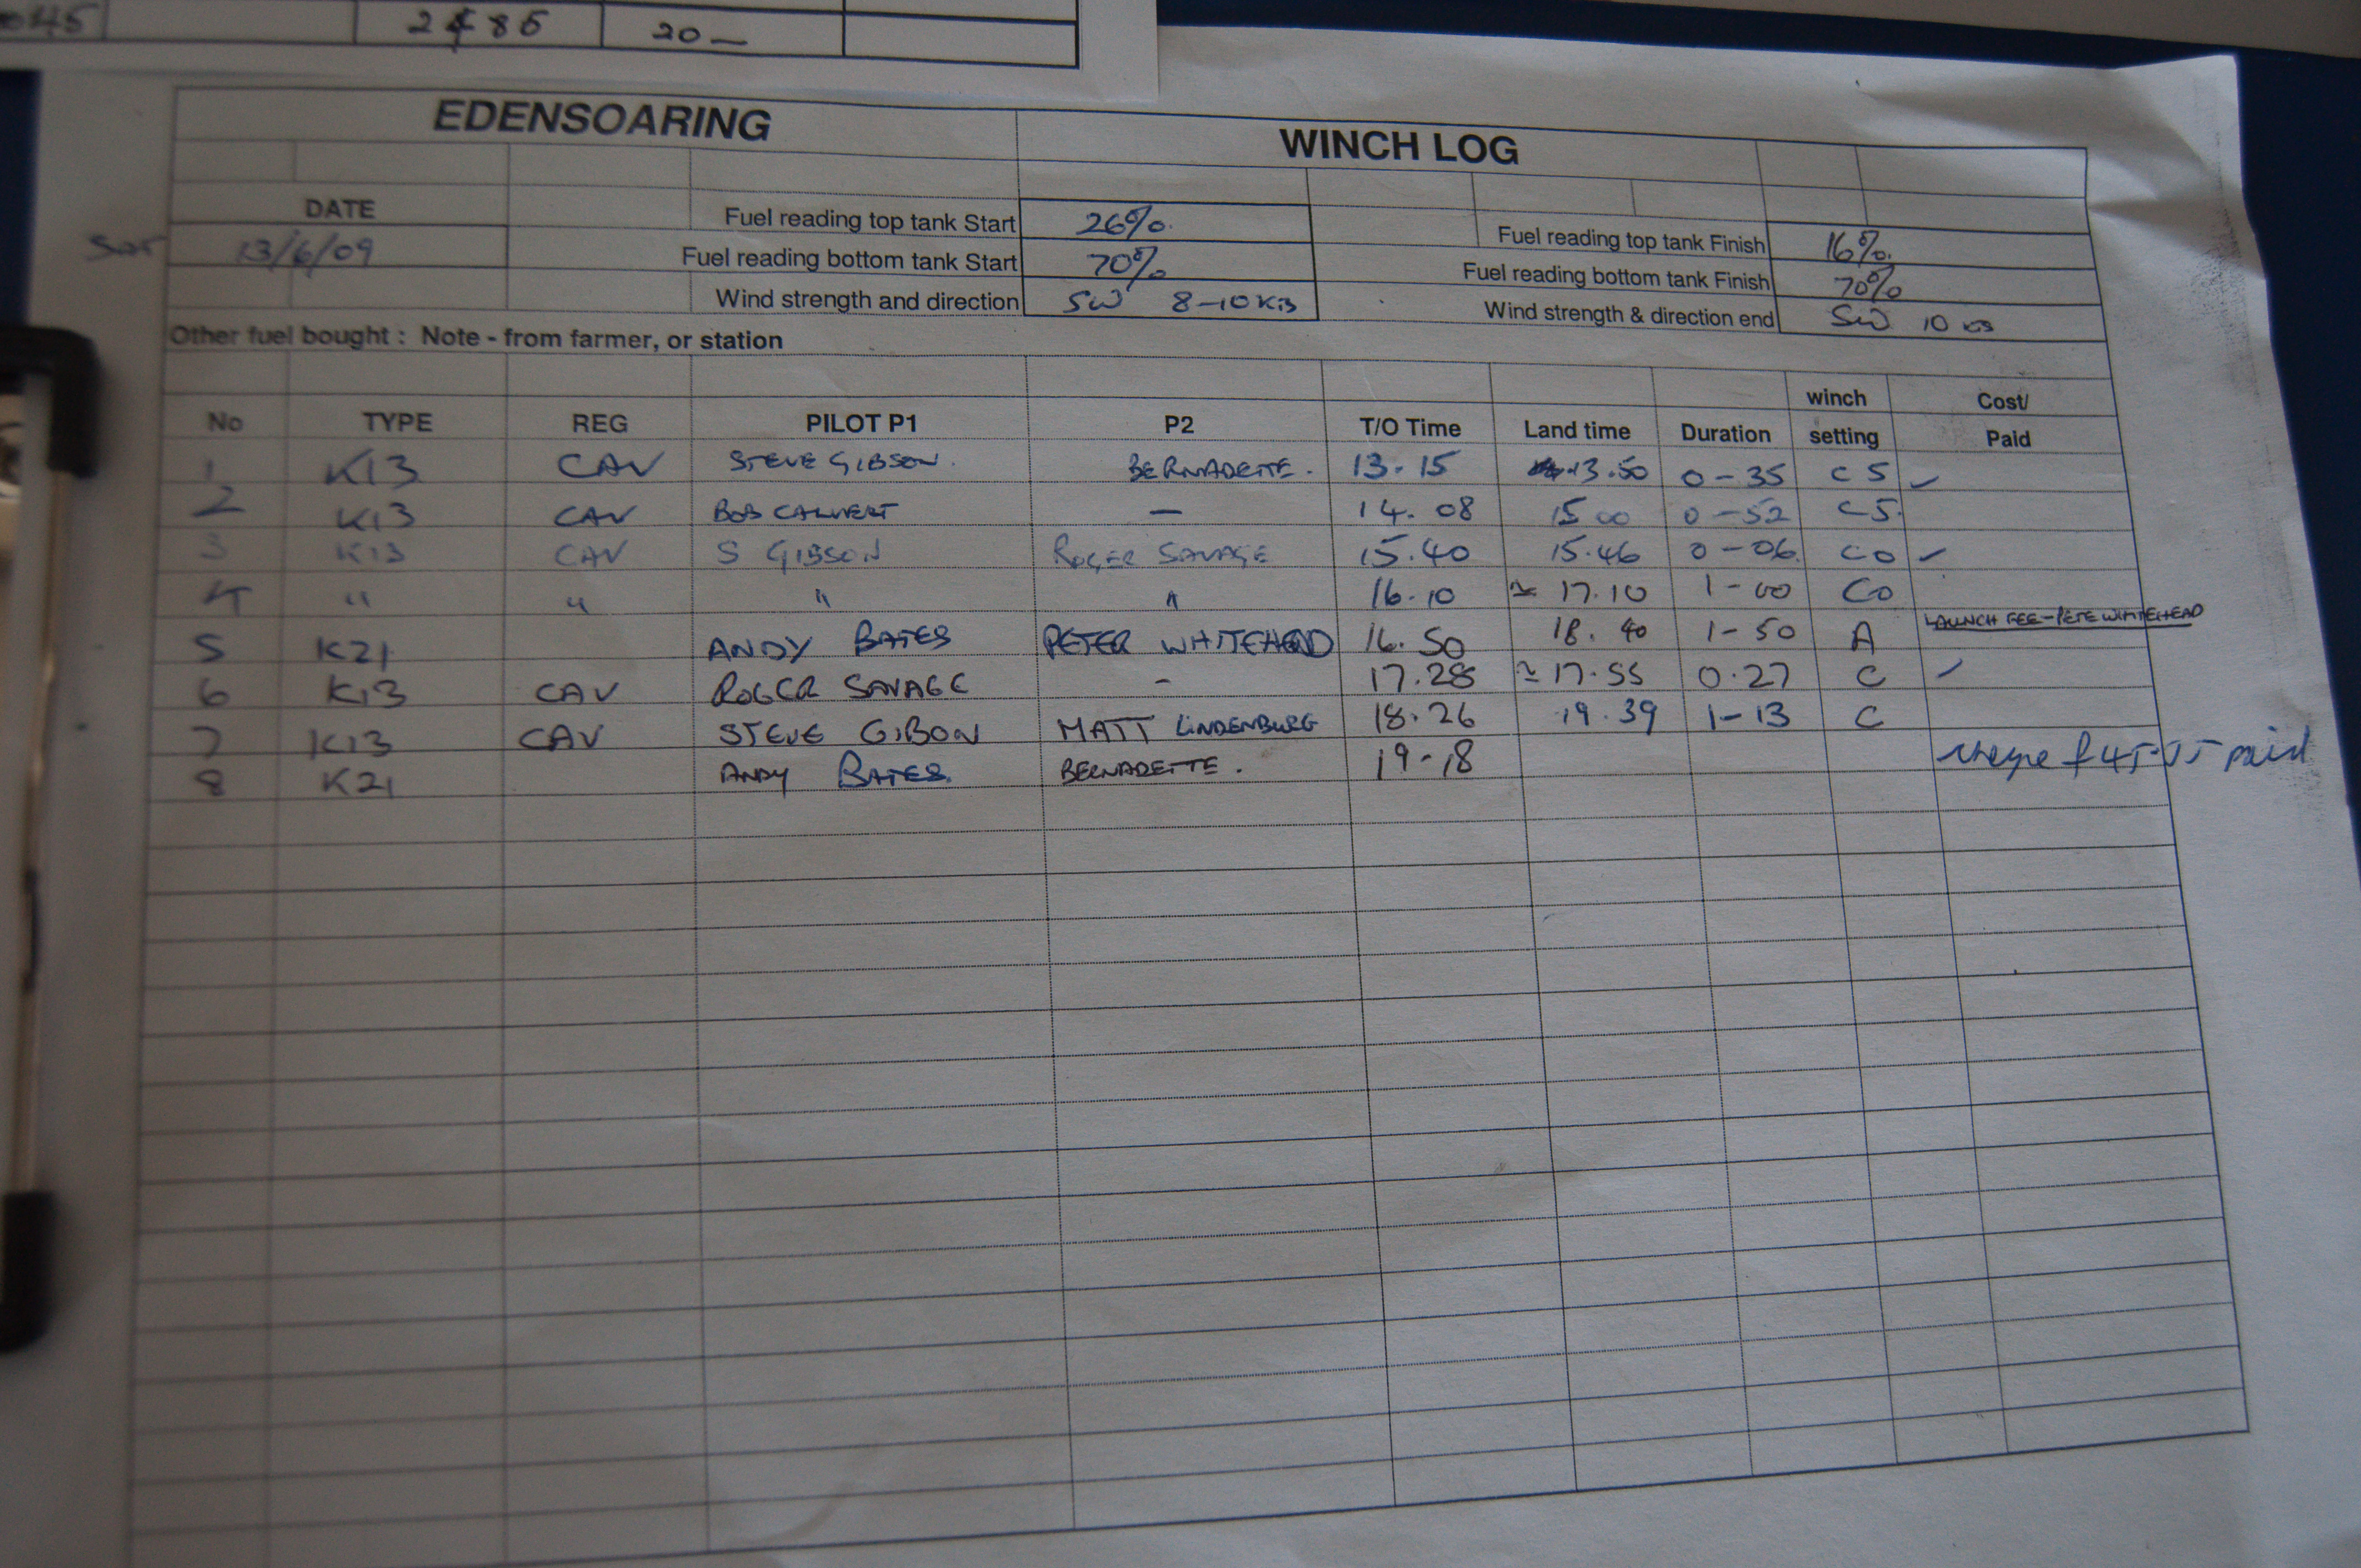 045 2486 20 —
EDENSOARING WINCH LOG
DATE Fuel reading top tank Start 26% Fuel reading top tank Finish 16%.
SAT 13/6/09 Fuel reading bottom tank Start 70% Fuel reading bottom tank Finish 70%
Wind strength and direction SW 8-10 Kts Wind strength & direction end SW 10 kts
Other fuel bought : Note - from farmer, or station
winch Cost/
No TYPE REG PILOT P1 P2 T/O Time Land time Duration setting Paid
1 K13 CAV STEVE GIBSON. BERNADETTE. 13.15 13.50 0-35 C5 ✓
2 K13 CAV BOB CALVERT — 14.08 15 00 0-52 C5.
3 K13 CAV S GIBSON ROGER SAVAGE 15.40 15.46 0-06 C0 ✓
4 " " " " 16.10 ≃ 17.10 1-00 C0
5 K21 ANDY BATES PETER WHITEHEAD 16.50 18.40 1-50 A LAUNCH FEE-PETE WHITEHEAD
6 K13 CAV ROGER SAVAGE - 17.28 ≃ 17.55 0.27 C ✓
7 K13 CAV STEVE GIBON MATT LINDENBURG 18.26 19.39 1-13 C
8 K21 ANDY BATES. BERNADETTE. 19-18 paid